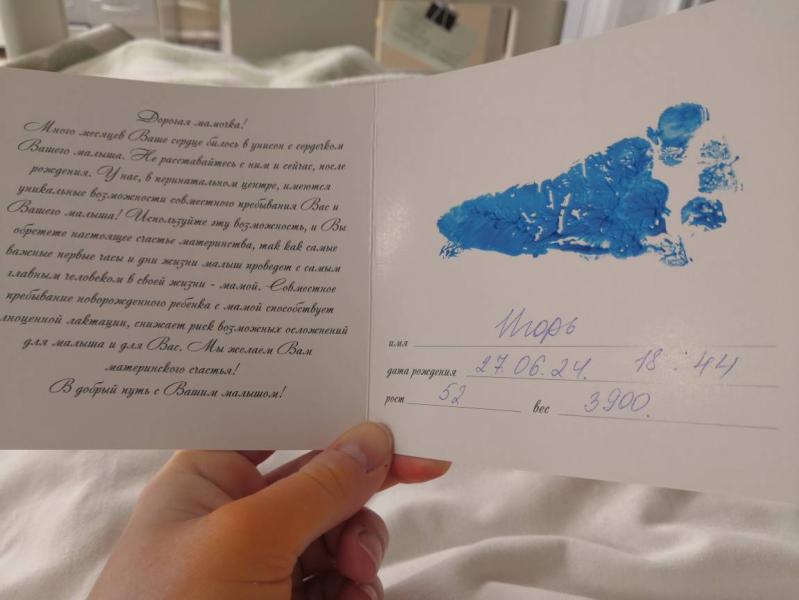 Дорогая мамочка!
Много месяцев Ваше сердце билось в унисон с сердечком
Вашего малыша. Не расставайтесь с ним и сейчас, после
рождения. У нас, в перинатальном центре, имеются
уникальные возможности совместного пребывания Вас и
Вашего малыша! Используйте эту возможность, и Вы
обретете настоящее счастье материнства, так как самые
важные первые часы и дни жизни малыш проведет с самым
главным человеком в своей жизни - мамой. Совместное
пребывание новорожденного ребенка с мамой способствует
лноценной лактации, снижает риск возможных осложнений
для малыша и для Вас. Мы желаем Вам
материнского счастья!
В добрый путь с Вашим малышом!
имя Игорь
дата рождения 27.06.24. 18:44
рост 52 вес 3900.